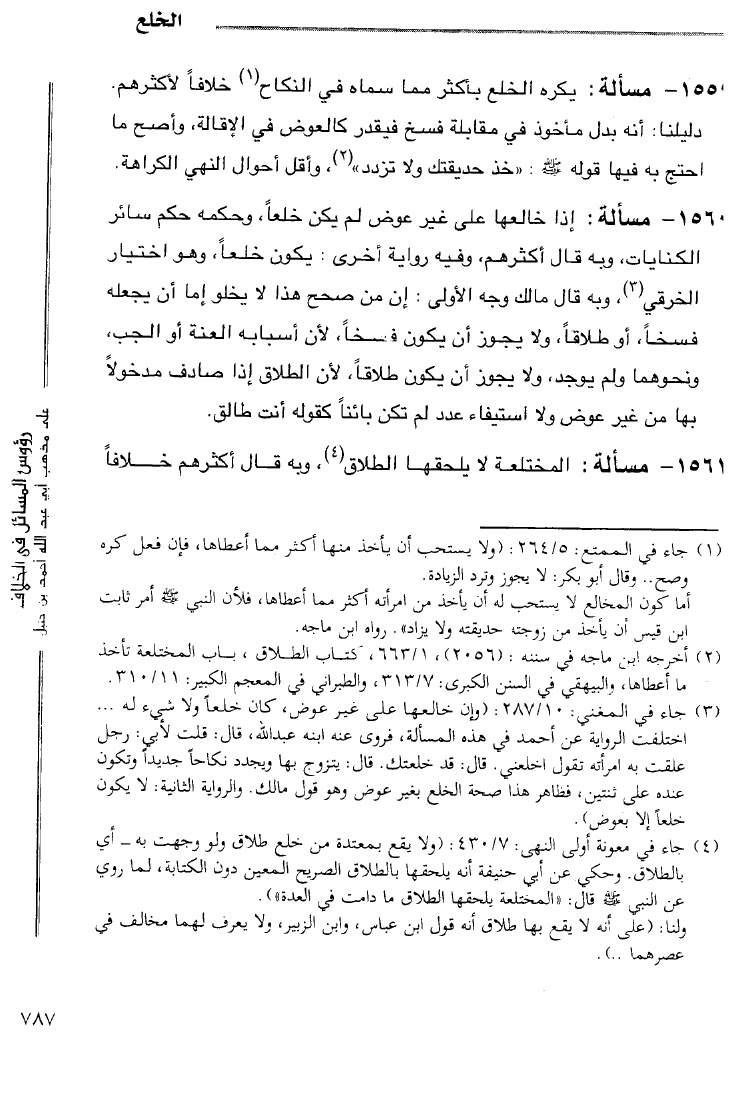 الخلع
١٥٥٠- مسألة: يكره الخلع بأكثر مما سماه في النكاح(١) خلافاً لأكثرهم.
دليلنا: أنه بدل مأخوذ في مقابلة فسخ فيقدر كالعوض في الإقالة، وأصح ما
احتج به فيها قوله ﷺ: «خذ حديقتك ولا تزدد»(٢)، وأقل أحوال النهي الكراهة.
١٥٦٠- مسألة: إذا خالعها على غير عوض لم يكن خلعاً، وحكمه حكم سائر
الكنايات، وبه قال أكثرهم، وفيه رواية أخرى: يكون خلعاً، وهو اختيار
الخرقي(٣)، وبه قال مالك وجه الأولى: إن من صحح هذا لا يخلو إما أن يجعله
فسخاً، أو طلاقاً، ولا يجوز أن يكون فسخاً، لأن أسبابه العنة أو الجب،
ونحوهما ولم يوجد، ولا يجوز أن يكون طلاقاً، لأن الطلاق إذا صادف مدخولاً
بها من غير عوض ولا استيفاء عدد لم تكن بائناً كقوله أنت طالق.
١٥٦١- مسألة: المختلعة لا يلحقها الطلاق(٤)، وبه قال أكثرهم خلافاً
(١) جاء في الممتع: ٢٦٤/٥: (ولا يستحب أن يأخذ منها أكثر مما أعطاها، فإن فعل كره
وصح.. وقال أبو بكر: لا يجوز وترد الزيادة.
أما كون المخالع لا يستحب له أن يأخذ من امرأته أكثر مما أعطاها، فلأن النبي ﷺ أمر ثابت
ابن قيس أن يأخذ من زوجته حديقته ولا يزاد». رواه ابن ماجه.
(٢) أخرجه ابن ماجه في سننه: (٢٠٥٦)، ٦٦٣/١، كتاب الطلاق، باب المختلعة تأخذ
ما أعطاها، والبيهقي في السنن الكبرى: ٣١٣/٧، والطبراني في المعجم الكبير: ٣١٠/١١.
(٣) جاء في المغني: ٢٨٧/١٠: (وإن خالعها على غير عوض، كان خلعاً ولا شيء له ...
اختلفت الرواية عن أحمد في هذه المسألة، فروى عنه ابنه عبدالله، قال: قلت لأبي: رجل
علقت به امرأته تقول اخلعني. قال: قد خلعتك. قال: يتزوج بها ويجدد نكاحاً جديداً وتكون
عنده على ثنتين، فظاهر هذا صحة الخلع بغير عوض وهو قول مالك. والرواية الثانية: لا يكون
خلعاً إلا بعوض).
(٤) جاء في معونة أولى النهى: ٤٣٠/٧: (ولا يقع بمعتدة من خلع طلاق ولو وجهت به ـ أي
بالطلاق. وحكي عن أبي حنيفة أنه يلحقها بالطلاق الصريح المعين دون الكتابة، لما روي
عن النبي ﷺ قال: «المختلعة يلحقها الطلاق ما دامت في العدة»).
ولنا: (على أنه لا يقع بها طلاق أنه قول ابن عباس، وابن الزبير، ولا يعرف لهما مخالف في
عصرهما ..).
رؤوس المسائل في الخلاف
على مذهب أبي عبد الله أحمد بن حنبل
٧٨٧